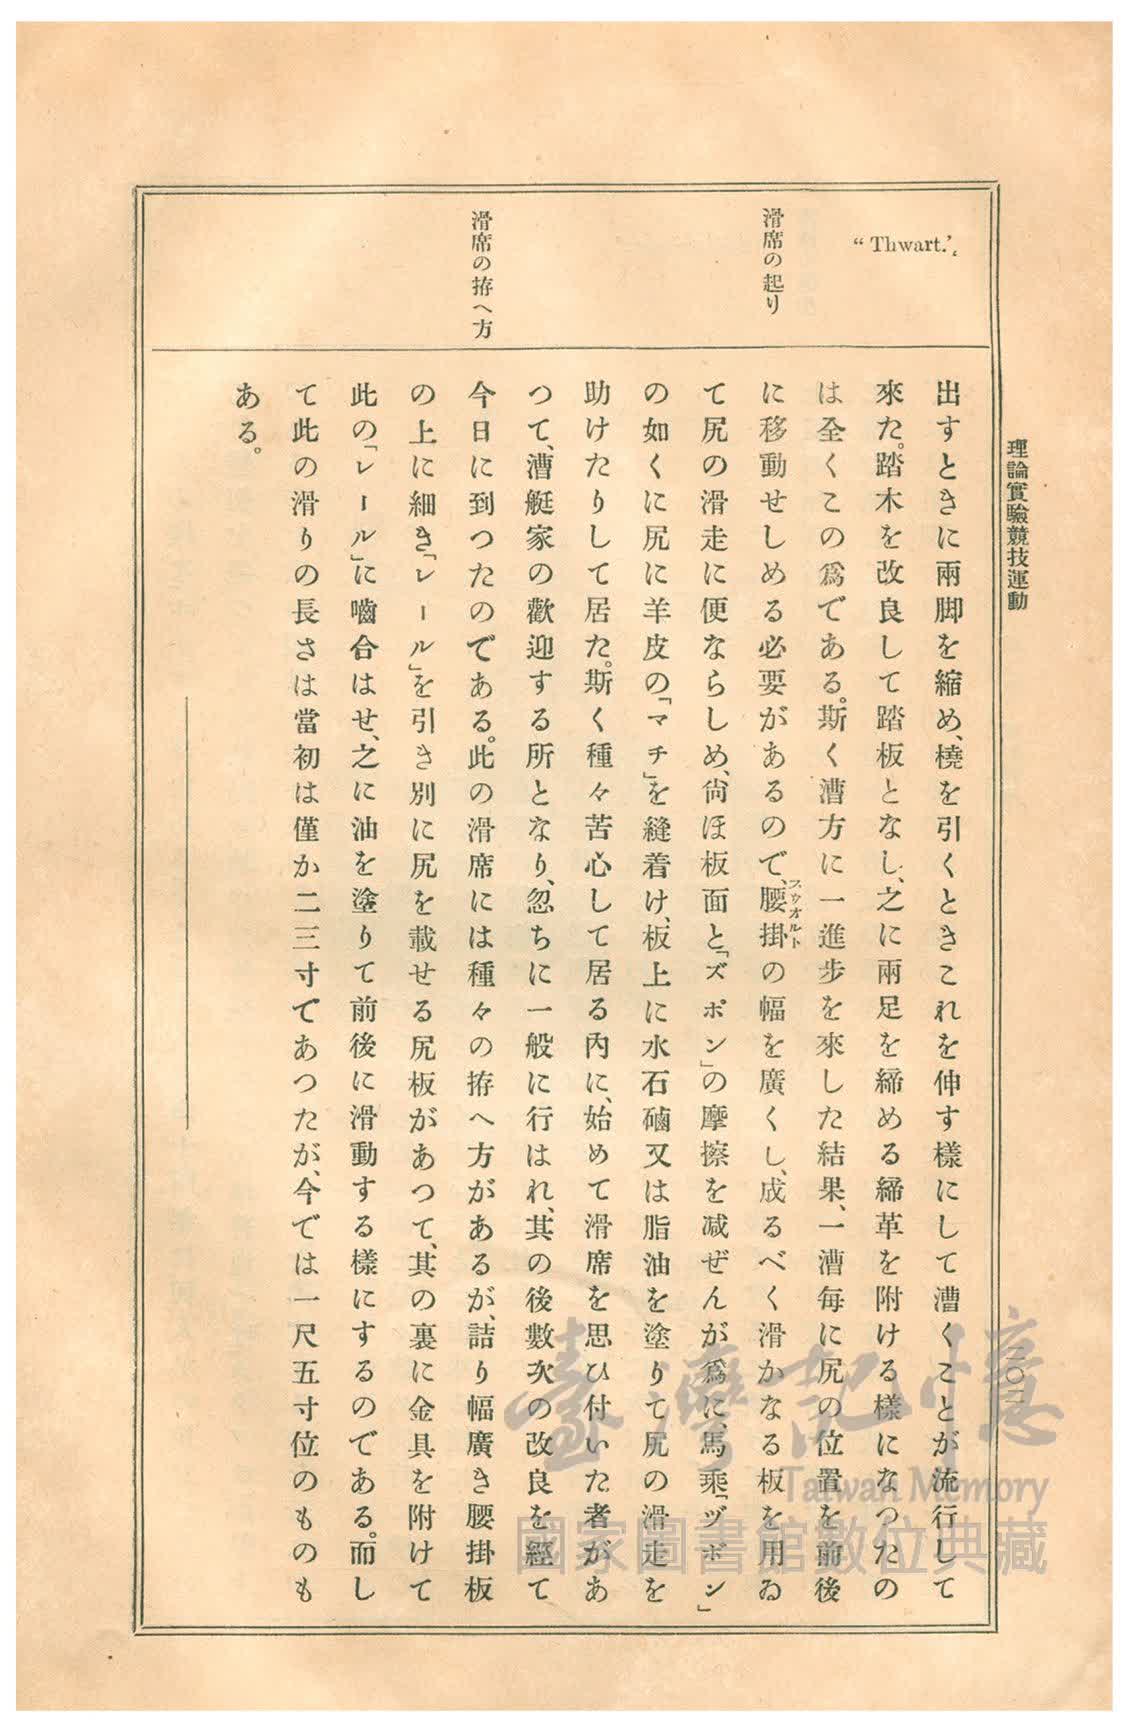 理論實驗競技運動
"Thwart."
滑席の起り
滑席の拵へ方
出すときに兩脚を縮め、橈を引くときこれを伸す樣にして漕くことが流行して
來た。踏木を改良して踏板となし、之に兩足を締める締革を附ける樣になつたの
は全くこの爲である。斯く漕方に一進步を來した結果、一漕每に尻の位置を前後
に移動せしめる必要があるので、腰掛の幅を廣くし、成るべく滑かなる板を用ゐ
スウオルト
て尻の滑走に便ならしめ、尙ほ板面と「ズボン」の摩擦を减ぜんが爲に、馬乘「ヅボン」
の如くに尻に羊皮の「マチ」を縫着け、板上に水石鹼又は脂油を塗りて尻の滑走を
助けたりして居た。斯く種々苦心して居る內に、始めて滑席を思ひ付いた者があ
つて、漕艇家の歡迎する所となり、忽ちに一般に行はれ、其の後數次の改良を經て
今日に到つたのである。此の滑席には種々の拵へ方があるが、詰り幅廣き腰掛板
の上に細き「レール」を引き別に尻を載せる尻板があつて、其の裏に金具を附けて
此の「レール」に嚙合はせ、之に油を塗りて前後に滑動する樣にするのである。而し
て此の滑りの長さは當初は僅か二三寸であつたが、今では一尺五寸位のものも
ある。
臺灣記憶
Taiwan Memory
國家圖書館數位典藏